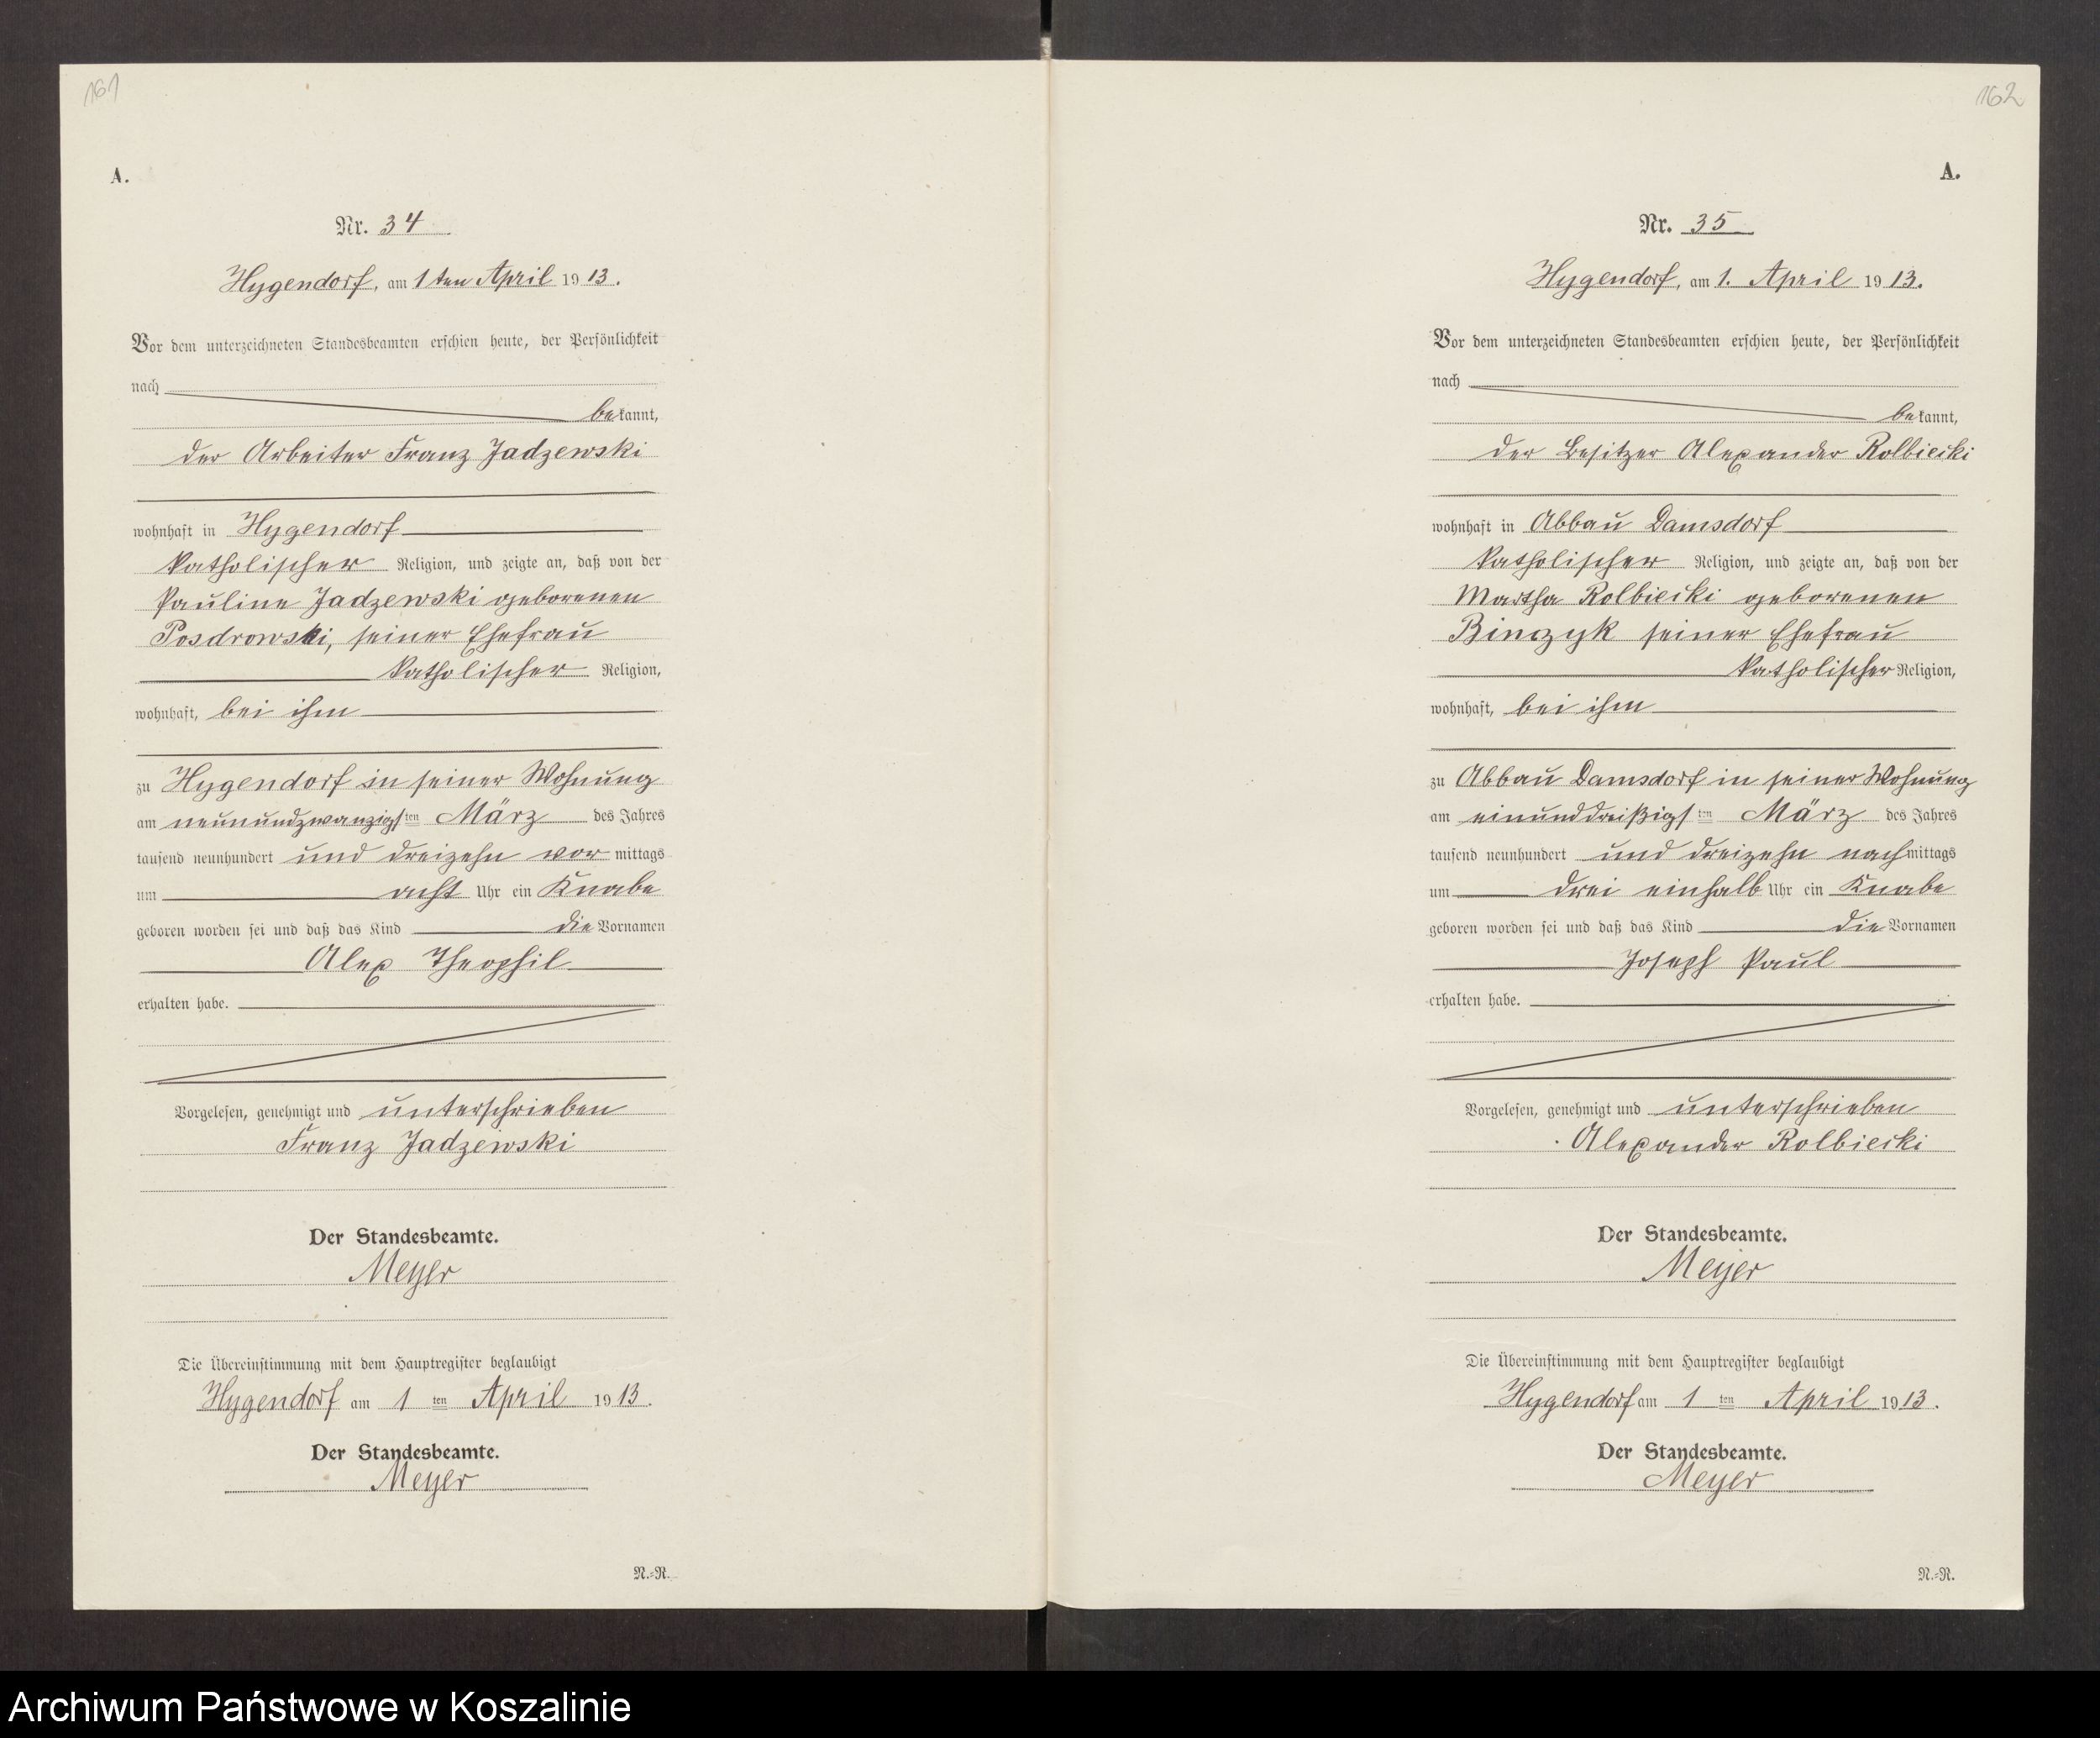 161
A.
Nr. 34
Hygendorf, am 1ten April 1913.
Vor dem unterzeichneten Standesbeamten erschien heute, der Persönlichkeit
nach
bekannt,
der Arbeiter Franz Jadzewski
wohnhaft in Hygendorf
katholischer Religion, und zeigte an, daß von der
Pauline Jadzewski geborenen
Posdrowski, seiner Ehefrau
katholischer Religion,
wohnhaft, bei ihm
zu Hygendorf in seiner Wohnung
am neunundzwanzigsten März des Jahres
tausend neunhundert und dreizehn vormittags
um acht Uhr ein Knabe
geboren worden sei und daß das Kind die Vornamen
Alex Theophil
erhalten habe.
Vorgelesen, genehmigt und unterschrieben
Franz Jadzewski
Der Standesbeamte.
Meyer
Die Übereinstimmung mit dem Hauptregister beglaubigt
Hygendorf am 1ten April 1913.
Der Standesbeamte.
Meyer
N.=R.
162
A.
Nr. 35
Hygendorf, am 1. April 1913.
Vor dem unterzeichneten Standesbeamten erschien heute, der Persönlichkeit
nach
bekannt,
der Besitzer Alexander Rolbiecki
wohnhaft in Abbau Damsdorf
katholischer Religion, und zeigte an, daß von der
Martha Rolbiecki geborenen
Binczyk seiner Ehefrau
katholischer Religion,
wohnhaft, bei ihm
zu Abbau Damsdorf in seiner Wohnung
am einunddreißigsten März des Jahres
tausend neunhundert und dreizehn nachmittags
um drei einhalb Uhr ein Knabe
geboren worden sei und daß das Kind die Vornamen
Joseph Paul
erhalten habe.
Vorgelesen, genehmigt und unterschrieben
Alexander Rolbiecki
Der Standesbeamte.
Meyer
Die Übereinstimmung mit dem Hauptregister beglaubigt
Hygendorf am 1ten April 1913.
Der Standesbeamte.
Meyer
N.=R.
Archiwum Państwowe w Koszalinie